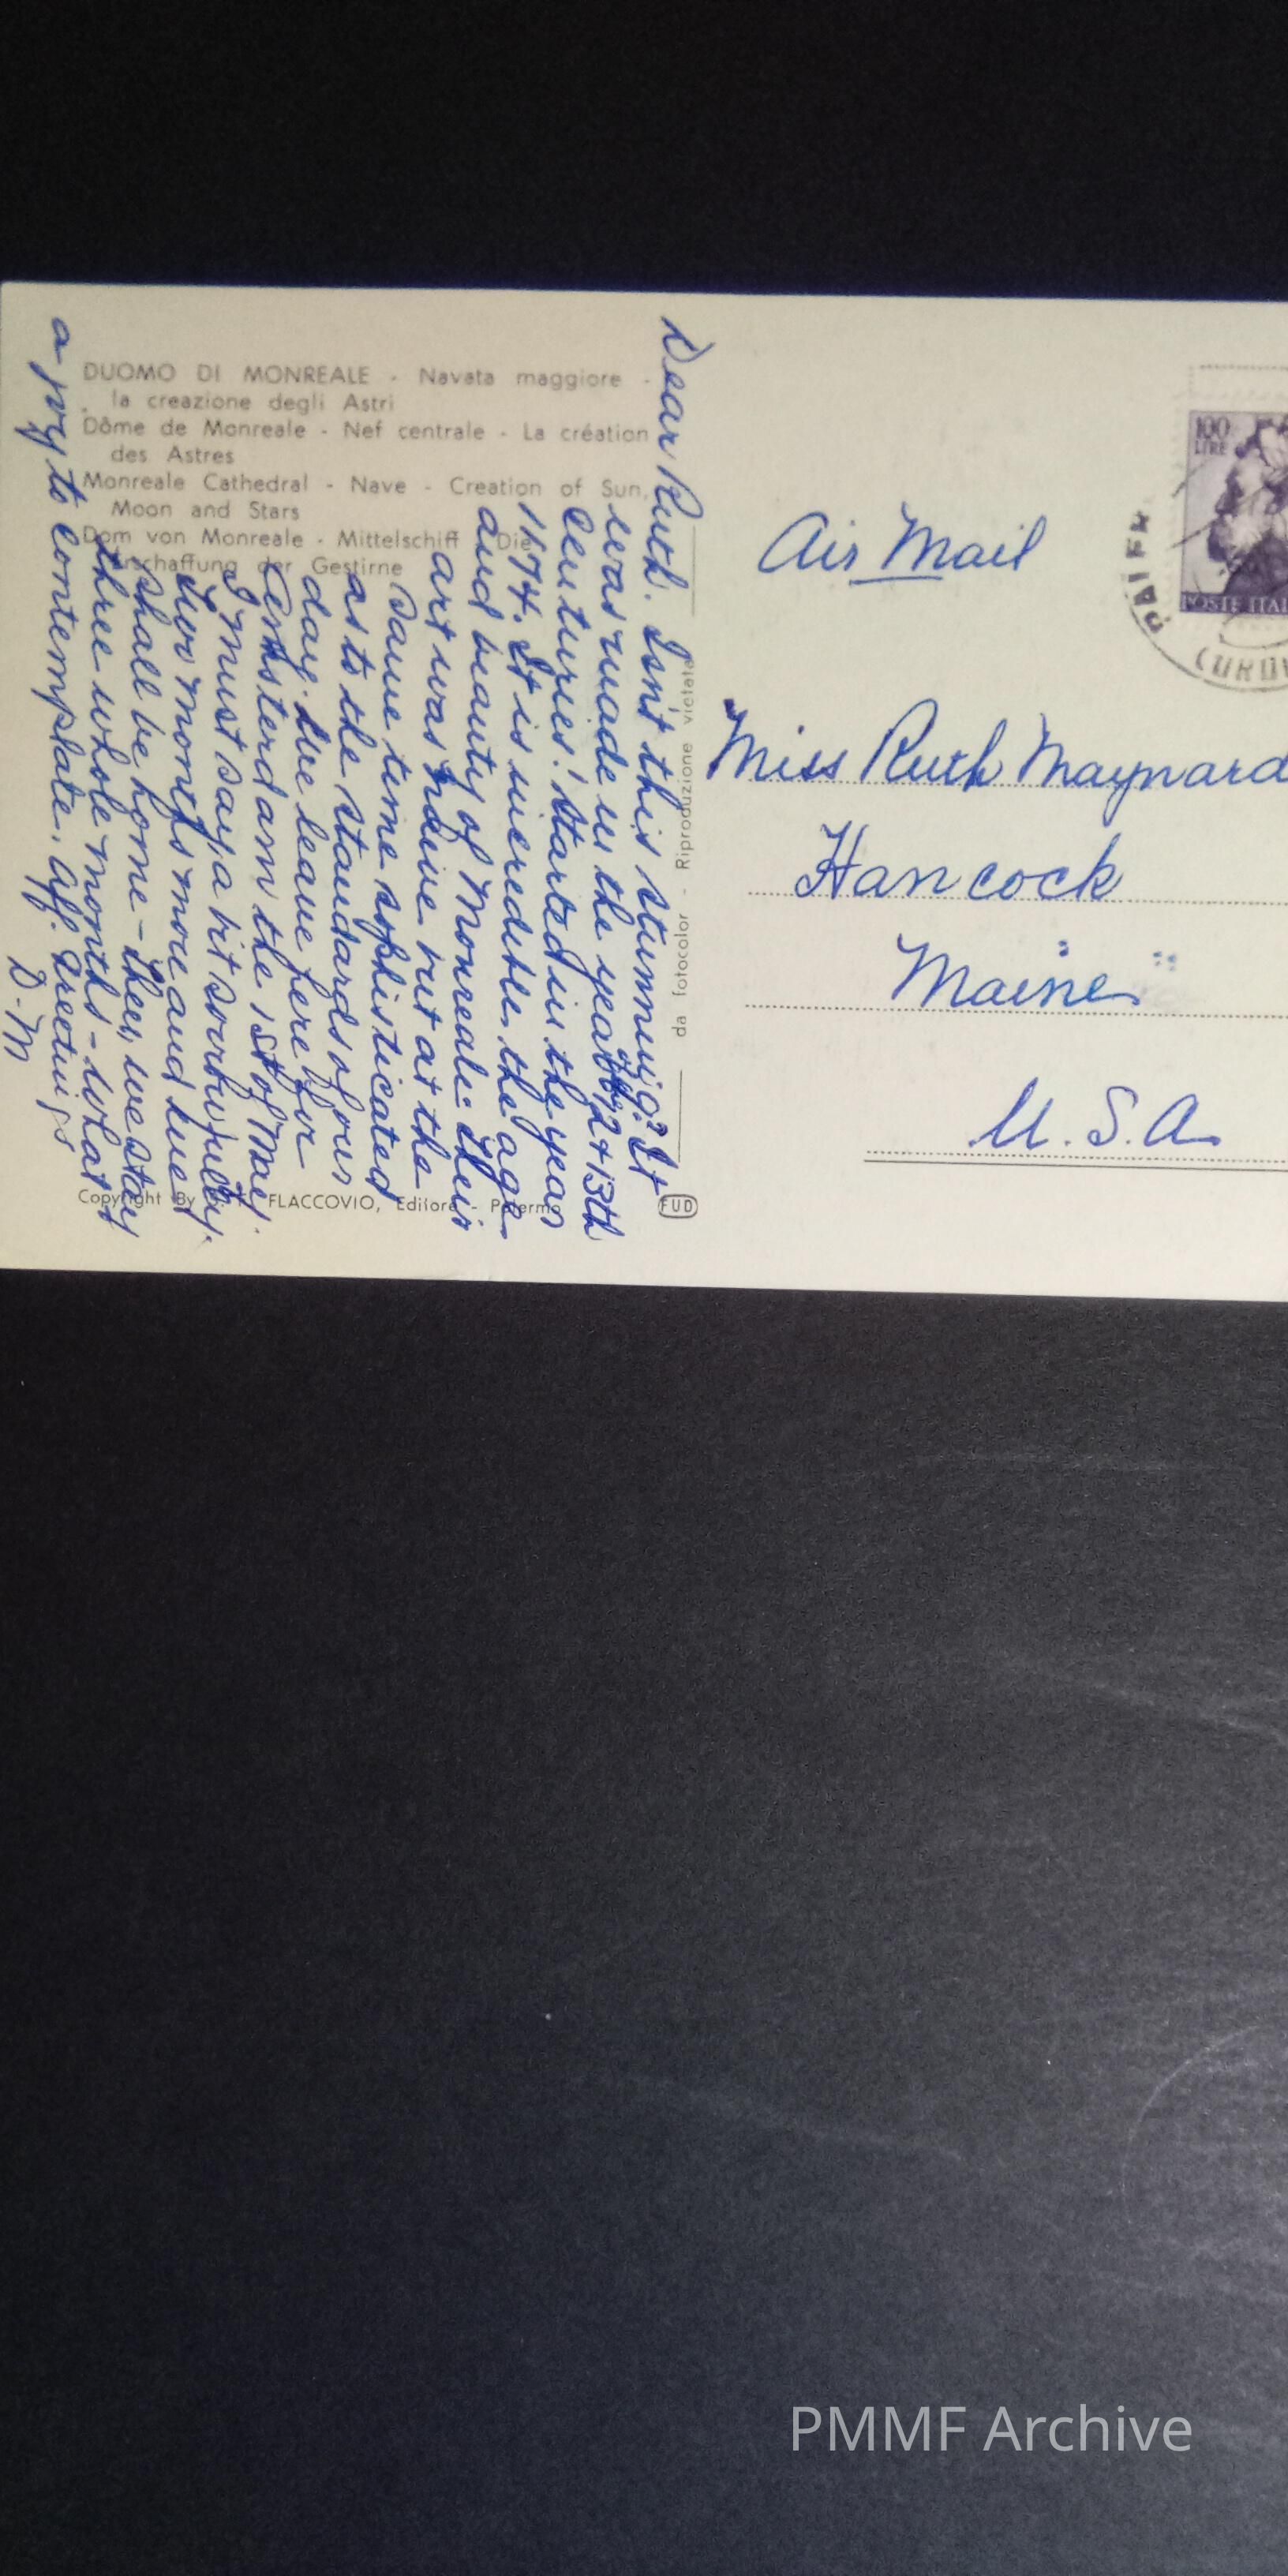 DUOMO DI MONREALE - Navata maggiore -
la creazione degli Astri
Dôme de Monreale - Nef centrale - La création
des Astres
Monreale Cathedral - Nave - Creation of Sun,
Moon and Stars
Dom von Monreale - Mittelschiff - Die
Erschaffung der Gestirne
Dear Ruth. Isn't this stunning? It
was made in the 12 + 13th
Centuries! Started in the year
1174. It is incredible, the age
and beauty of Monreale. Their
art was naive but at the
same time sophisticated
as to the standards of our
day. We leave here for
Amsterdam the 1st of May.
I must say, a bit sorrowfully.
Two months more and we
shall be home - then, we stay
three whole months - what
a joy to contemplate. Aff. Greetings
D-M
Copyright By FLACCOVIO, Editore - Palermo
da fotocolor - Riproduzione vietata
FUD
Air Mail
100
LIRE
POSTE ITAL
Miss Ruth Maynard
Hancock
Maine
U.S.A.
PMMF Archive